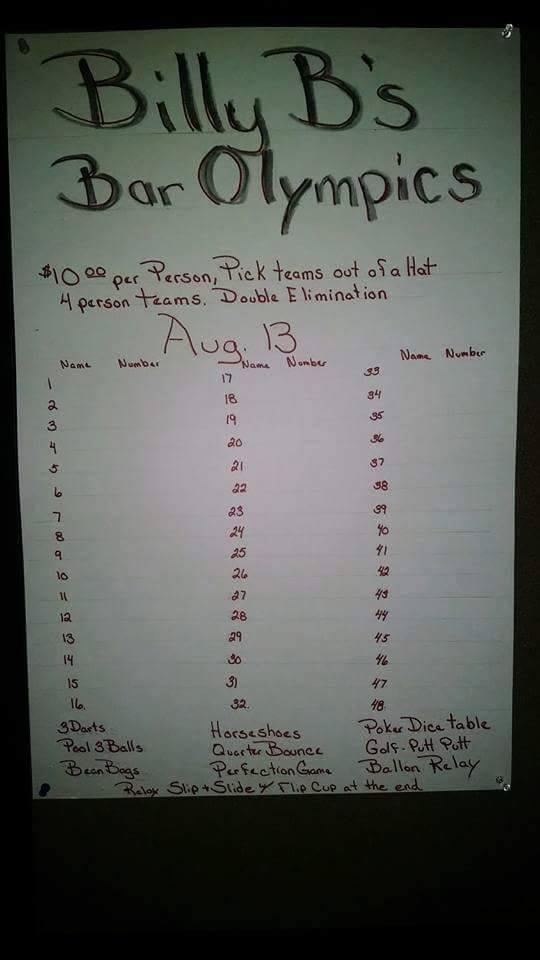 Billy B's
Bar Olympics
$10.00 per Person, Pick teams out of a Hat
4 person teams. Double Elimination
Aug. 13
Name Number Name Number Name Number
1 17 33
2 18 34
3 19 35
4 20 36
5 21 37
6 22 38
7 23 39
8 24 40
9 25 41
10 26 42
11 27 43
12 28 44
13 29 45
14 30 46
15 31 47
16. 32. 48.
3 Darts Horseshoes Poker Dice table
Pool 3 Balls Quarter Bounce Golf-Putt Putt
Bean Bags Perfection Game Ballon Relay
Relay Slip + Slide & Flip Cup at the end